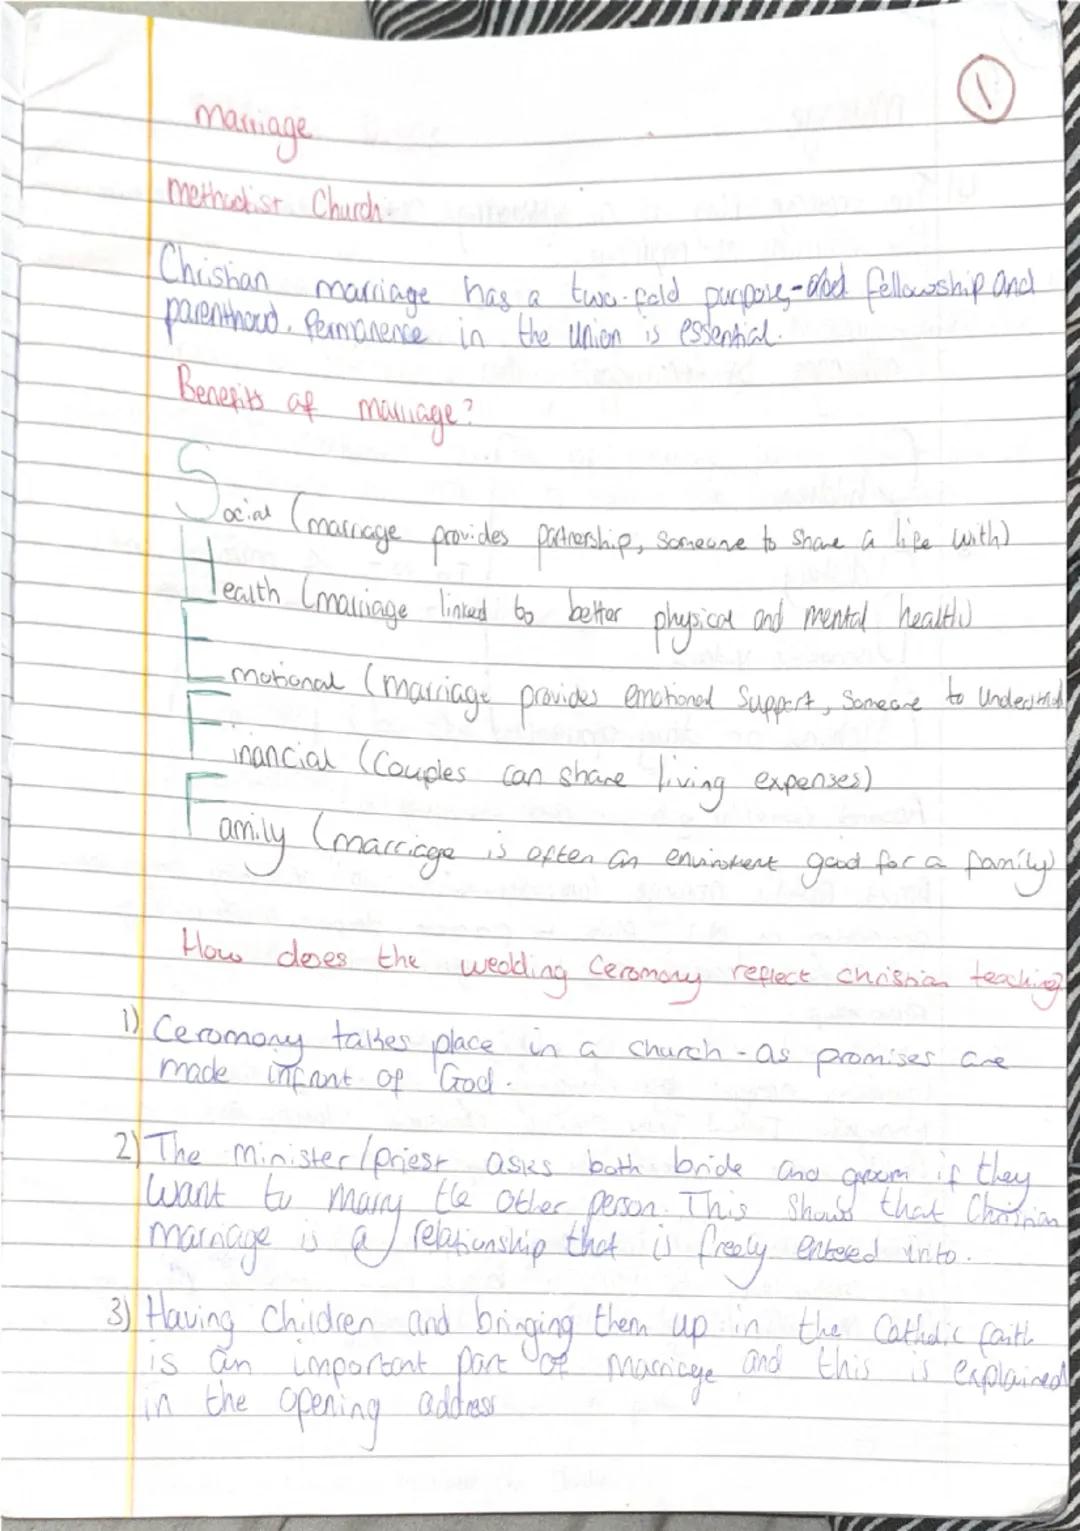 1
Marriage
Methodist Church
Christian marriage has a two-fold purpose, fellowship and
parenthood. Permanence in the union is essential.
Benefits of marriage?
Social (marriage provides partnership, someone to share a life with)
Health (marriage linked to better physical and mental health)
Emotional (marriage provides emotional support, someone to understand
Financial (Couples can share living expenses)
Family (marriage is often an good for a family)
How does the wedding Ceromony reflect christian teaching?
1) Ceromony takes place in a church - as promises are
made infront of God.
2) The minister/priest asks both bride and groom if they
want to marry the other person. This shows that Christian
marriage is a relationship that is freely entered into.
3) Having Children and bringing them up in the Catholic faith
is an important part of marriage and this is explained
in the opening address